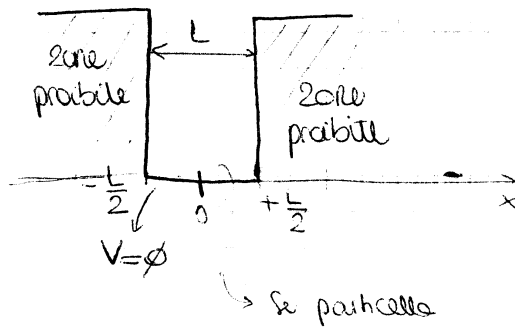 L
zone
proibite
zone
proibite
- L/2
0
+ L/2
x
V=∅
se particella